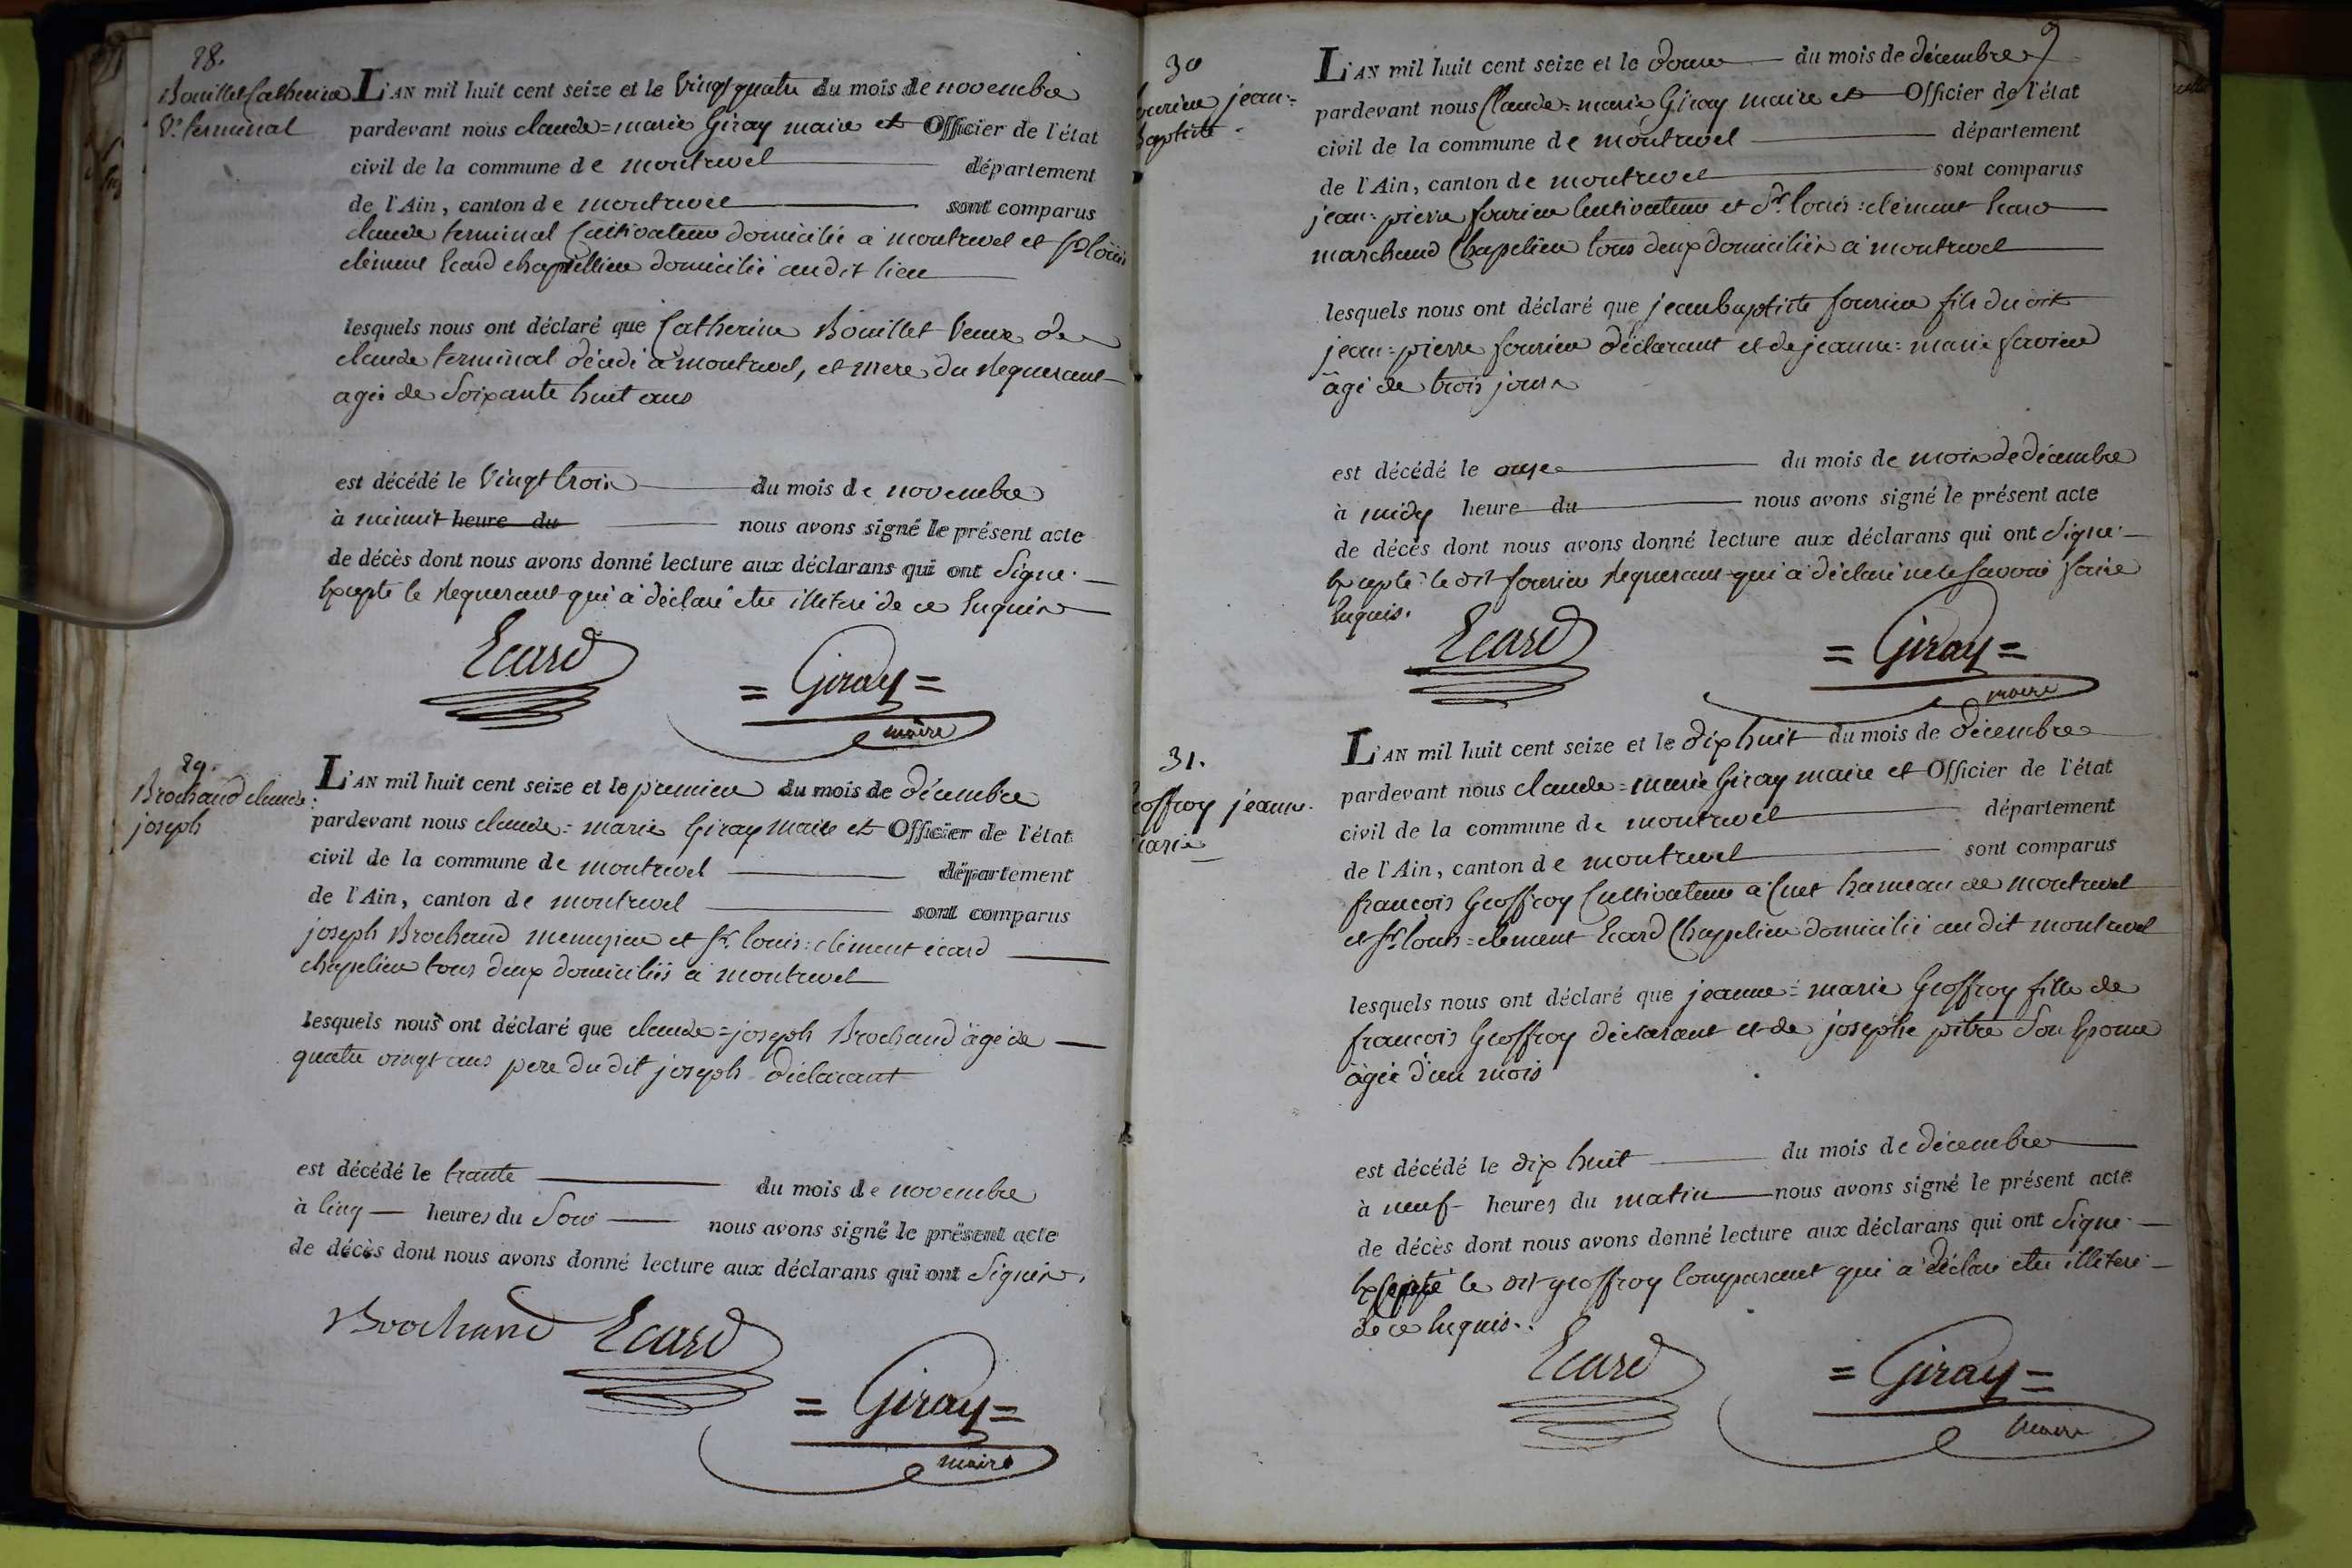 28.
Bouillet Catherine
Ve. terminal
L'AN mil huit cent seize et le Vingt quatre du mois de novembre
pardevant nous claude=marie Giray maire et Officier de l'état
civil de la commune de montrevel département
de l'Ain, canton de montrevel sont comparus
claude terminal Cultivateur domicilié à montrevel et Sr. louis
clément Ecard chapellier domicilié audit lieu
lesquels nous ont déclaré que Catherine Bouillet Veuve de
claude terminal décédé à montrevel, et mere du Requerant
agée de Soixante huit ans
est décédé le Vingt trois du mois de novembre
à minuit heure du nous avons signé le présent acte
de décès dont nous avons donné lecture aux déclarans qui ont Signé.
Excepté le Requerant qui à déclaré etre illiteré de ce Enquis
Ecard
= Giray =
maire
29.
Brochand claude:
joseph
L'AN mil huit cent seize et le premier du mois de décembre
pardevant nous claude=marie Giray maire et Officier de l'état
civil de la commune de montrevel département
de l'Ain, canton de montrevel sont comparus
joseph Brochand menuzier et Sr. louis=clément écard
chapelier tous deux domiciliés à montrevel
lesquels nous ont déclaré que claude=joseph Brochand âgé de
quatre vingt ans pere du dit joseph déclarant
est décédé le trante du mois de novembre
à Cinq heures du Soir nous avons signé le présent acte
de décès dont nous avons donné lecture aux déclarans qui ont Signés.
Brochand Ecard
= Giray =
maire
9
30
jean=
baptiste
L'AN mil huit cent seize et le douze du mois de décembre
pardevant nous Claude=marie Giray maire et Officier de l'état
civil de la commune de montrevel département
de l'Ain, canton de montrevel sont comparus
jean=pierre fourier Cultivateur et Sr. louis=clément Ecard
marchand Chapelier tous deux domiciliés à montrevel
lesquels nous ont déclaré que jeanbaptiste fourier fils du dit
jean=pierre fourier déclarant et de jeanne=marie
âgé de trois jours
est décédé le onze du mois de mois de décembre
à midy heure du nous avons signé le présent acte
de décès dont nous avons donné lecture aux déclarans qui ont Signé.
Excepté le dit fourier Requerant qui à déclaré ne le Savoir faire
Enquis.
Ecard
= Giray =
maire
31.
eoffroy jeanne=
marie
L'AN mil huit cent seize et le dix huit du mois de décembre
pardevant nous claude=marie Giray maire et Officier de l'état
civil de la commune de montrevel département
de l'Ain, canton de montrevel sont comparus
francois Geoffroy Cultivateur à Cuet hameau de montrevel
et Sr. louis=clement Ecard Chapelier domicilié au dit montrevel
lesquels nous ont déclaré que jeanne=marie Geoffroy fille de
francois Geoffroy déclarant et de josephe pitre Son Epouse
âgée d'un mois
est décédé le dix huit du mois de décembre
à neuf heures du matin nous avons signé le présent acte
de décès dont nous avons donné lecture aux déclarans qui ont Signé.
Excepté le dit geoffroy Comparant qui à déclaré etre illiteré
de ce Enquis.
Ecard
= Giray =
maire